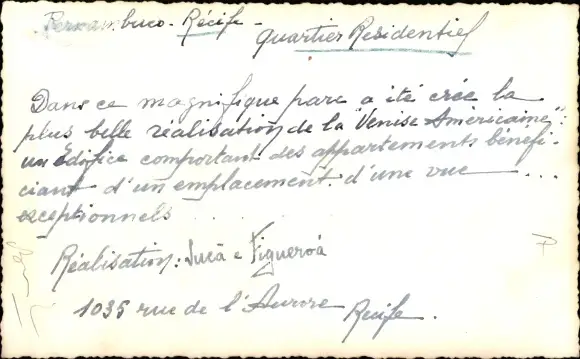 Pernambuco - Récife -
quartier Residentiel
Dans ce magnifique parc a été crée la
plus belle réalisation de la "Venise Américaine":
un édifice comportant des appartements bénéfi-
ciant d'un emplacement. d'une vue ....
exceptionnels ...
Réalisation: Jucà e Figueroà
1035 rue de l'Aurore Recife.